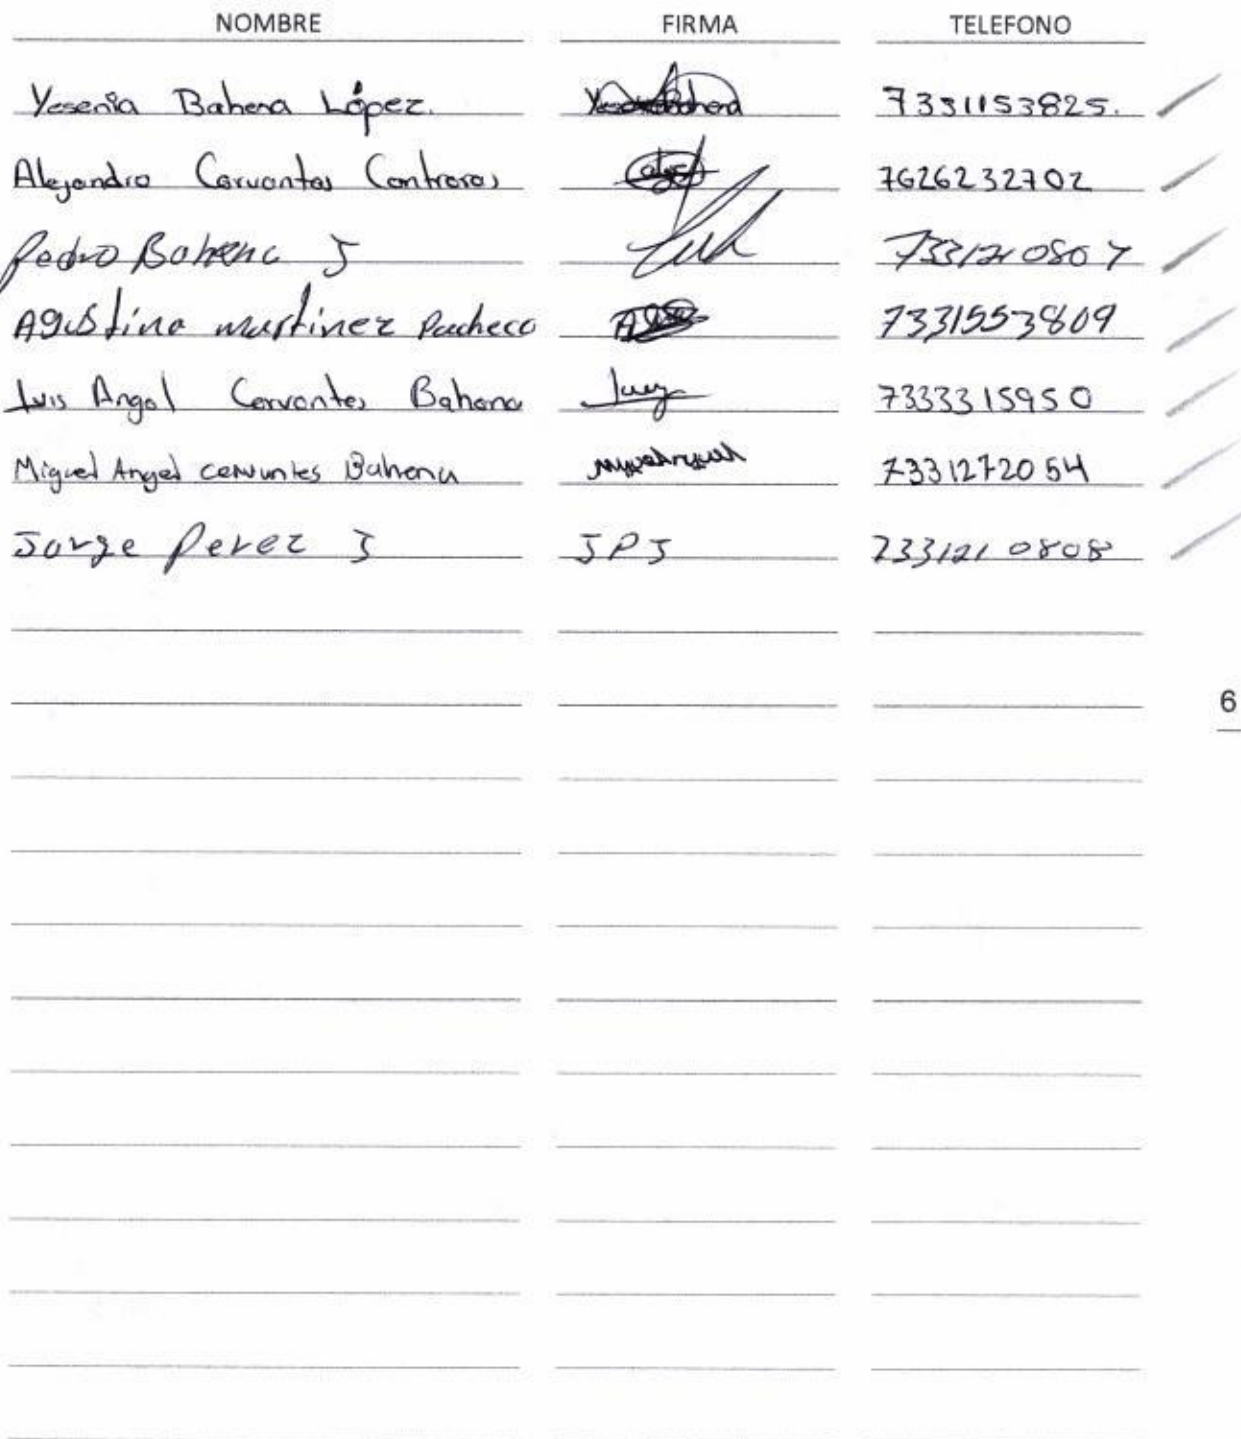 NOMBRE FIRMA TELEFONO
Yesenia Bahena López. 7331153825.
Alejandro Cervantes Contreras 7626232702
Pedro Bahena J 7331210807
Agustina martinez Pacheco 7331553809
Luis Angel Cervantes Bahena Luis 7333315950
Miguel Angel cervantes Bahena 7331272054
Jorge Perez J JPJ 7331210808
6